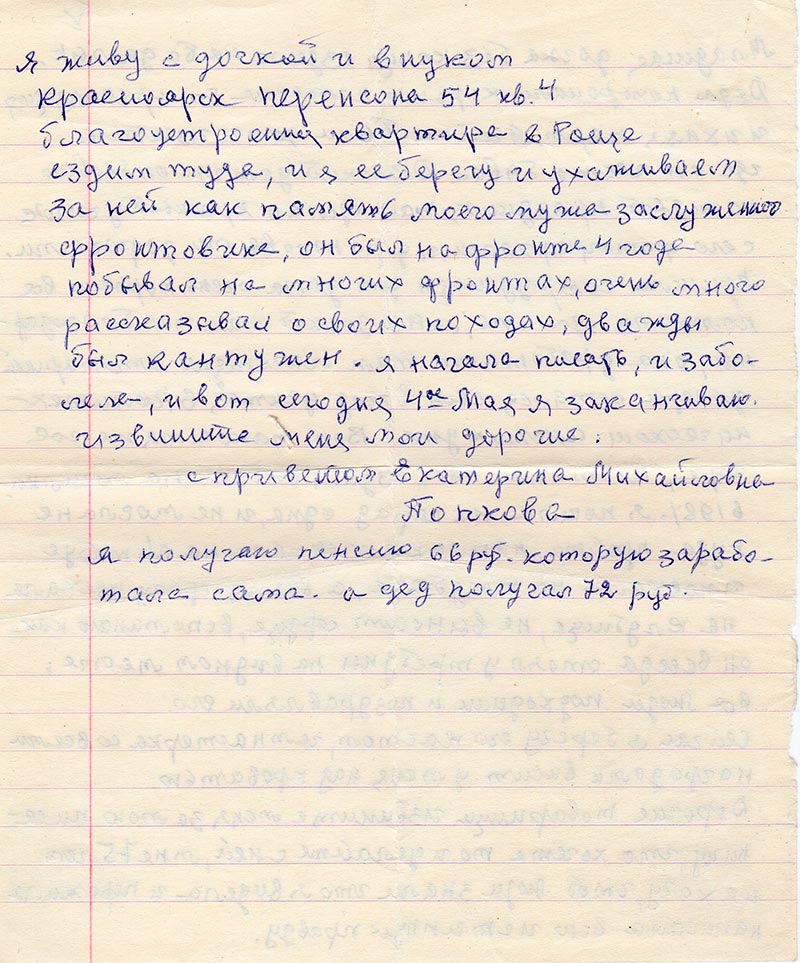 я живу с дочкой и внуком
Красноярск перенсона 54 кв. 4
благоустроеннй квартира в Роще
ездим туда, и я ее берегу и ухаживаем
за ней как память моего мужа заслуженного
фронтовика, он был на фронте 4 года
побывал на многих фронтах, очень много
рассказывал о своих походах, дважды
был кантужен. я начала писать, и забо-
лела, и вот сегодня 4ое Мая я заканчиваю.
извините меня мои дорогие.
с приветом Екатерина Михайловна
Попкова
я получаю пенсию 66 руб. которую зарабо-
тала сама. а дед получал 72 руб.